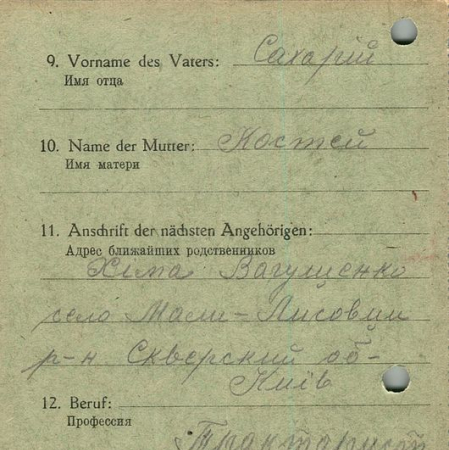 9. Vorname des Vaters: Сахарій
Имя отца
10. Name der Mutter: Костей
Имя матери
11. Anschrift der nächsten Angehörigen:
Адрес ближайших родственников
Хима Вагущенко
село Мали-Лисовци
р-н Скверский об-
Київ
12. Beruf:
Профессия
Трактарист